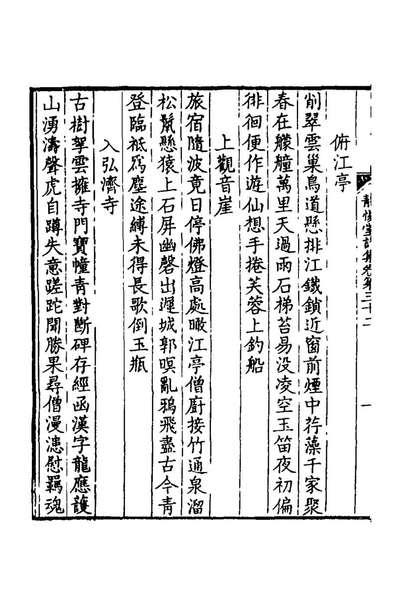 俯江亭
削翠雲巢鳥道懸排江鐵鎖近窗前煙中荇藻千家聚
春在艨艟萬里天過雨石梯苔易没凌空玉笛夜初偏
徘徊便作遊仙想手捲芙蓉上釣船
上觀音崖
旅宿隨波竟日停佛燈高處瞰江亭僧廚接竹通泉溜
松鬣懸猿上石屏幽磬出遲城郭暝亂鴉飛盡古今青
登臨祗為塵途縛未得長歌倒玉瓶
入弘濟寺
古樹拏雲擁寺門寶幢青對斷碑存經函漢字龍應護
山湧濤聲虎自蹲失意蹉跎聞勝果尋僧漫漶慰羈魂
靜惕堂詩集卷第三十二
一